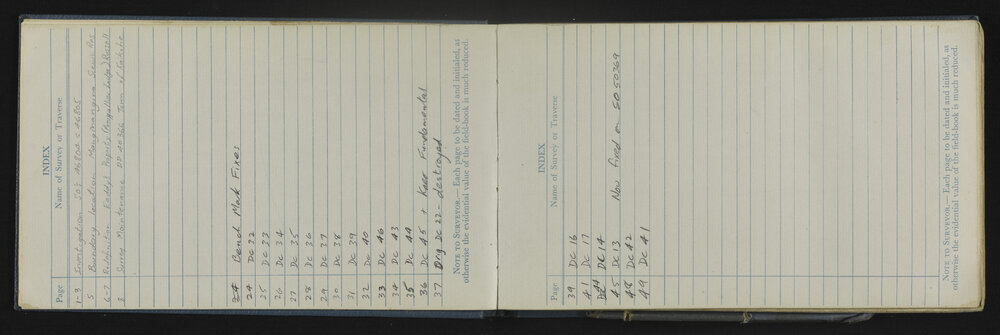 INDEX
Page Name of Survey or Traverse
1-3 Investigation SO's 46804 & 46805
5 Boundary location Mangingangina Scenic Res
6-7 Redefinition Property Russell
8 Survey Maintenance DP 40366 Town of Kaikohe
24 Bench Mark Fixes
24 DC 32
25 DC 33
26 DC 34
27 DC 35
28 DC 36
29 DC 37
30 DC 38
31 DC 39
32 DC 40
33 DC 46
34 DC 43
35 DC 44
36 DC 45 + Kaeo Fundamental
37 Orig DC 22 - destroyed
NOTE TO SURVEYOR.— Each page to be dated and initialed, as
otherwise the evidential value of the field-book is much reduced.
INDEX
Page Name of Survey or Traverse
39 DC 16
41 DC 17
44 DC 14
45 DC 13 Now fixed on SO 50369
48 DC 42
49 DC 41
NOTE TO SURVEYOR.— Each page to be dated and initialed, as
otherwise the evidential value of the field-book is much reduced.